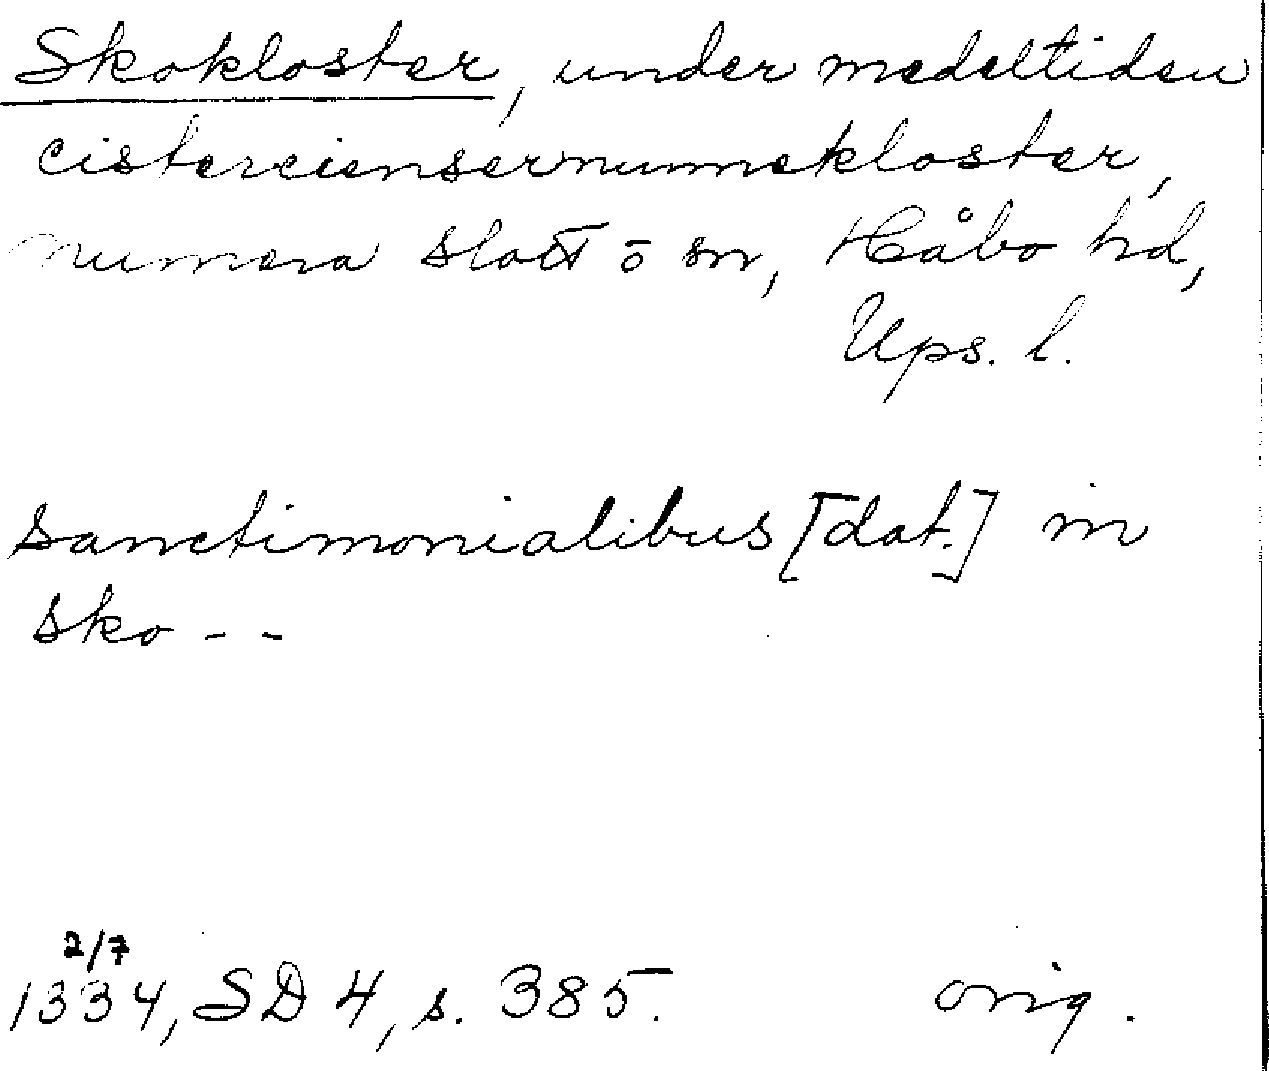 Skokloster, under medeltiden
cisterciensernunnekloster,
numera slott o sn, Håbo hd,
Ups. l.
sanctimonialibus [dat.] in
sko --
2/7
1334, SD 4, s. 385.
orig.